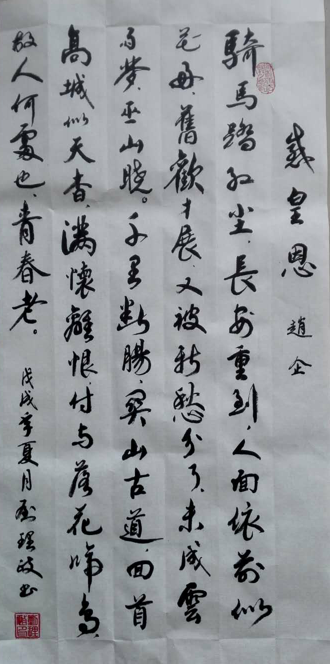 感皇恩 趙企
騎馬踏紅尘、長安重到、人面依前似
花好、舊歡才展、又被新愁分了、未成雲
雨夢、巫山曉。千里斷腸、関山古道、回首
高城似天杳、滿懷離恨、付与落花啼鳥、
故人何處也、青春老。
戊戌季夏月